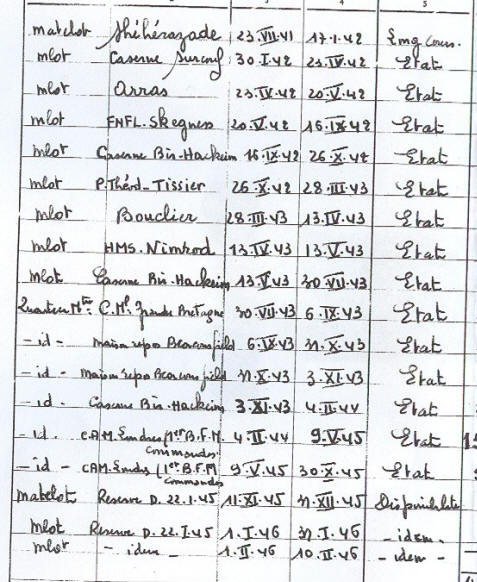 3 4 5
matelot Shéhérazade 23.VII.41 17.1.42 Emg Cours.
mlot Caserne Surcouf 30.I.42 23.IV.42 Etat
mlot Arras 23.IV.42 20.V.42 Etat
mlot FNFL. Skegness 20.V.42 16.IX.42 Etat
mlot Caserne Bir-Hackeim 16.IX.42 26.X.42 Etat
mlot P. Thérd-Tissier 26.X.42 28.III.43 Etat
mlot Bouclier 28.III.43 13.IV.43 Etat
mlot HMS. Nimrod 13.IV.43 13.V.43 Etat
mlot Caserne Bir-Hackeim 13.V.43 30.VII.43 Etat
Quartier Mtre C.M. Grande Bretagne 30.VII.43 6.IX.43 Etat
- id - Maison repos Beaconsfield 6.IX.43 31.X.43 Etat
- id - Maison repos Beaconsfield 31.X.43 3.XI.43 Etat
- id. Caserne Bir-Hackeim 3.XI.43 4.II.44 Etat
- id. C.A.M. Londres (1er B.F.M. 4.II.44 9.V.45 Etat
Commandos
- id - CAM. Londres (1er B.F.M 9.V.45 30.X.45 Etat
Commandos
Matelot Reserve D. 22.1.45 11.XI.45 31.XII.45 Disponibilité
Mlot Reserve D. 22.I.45 1.I.46 31.I.46 - idem -
mlot - idem - 1.II.46 10.II.46 - idem -